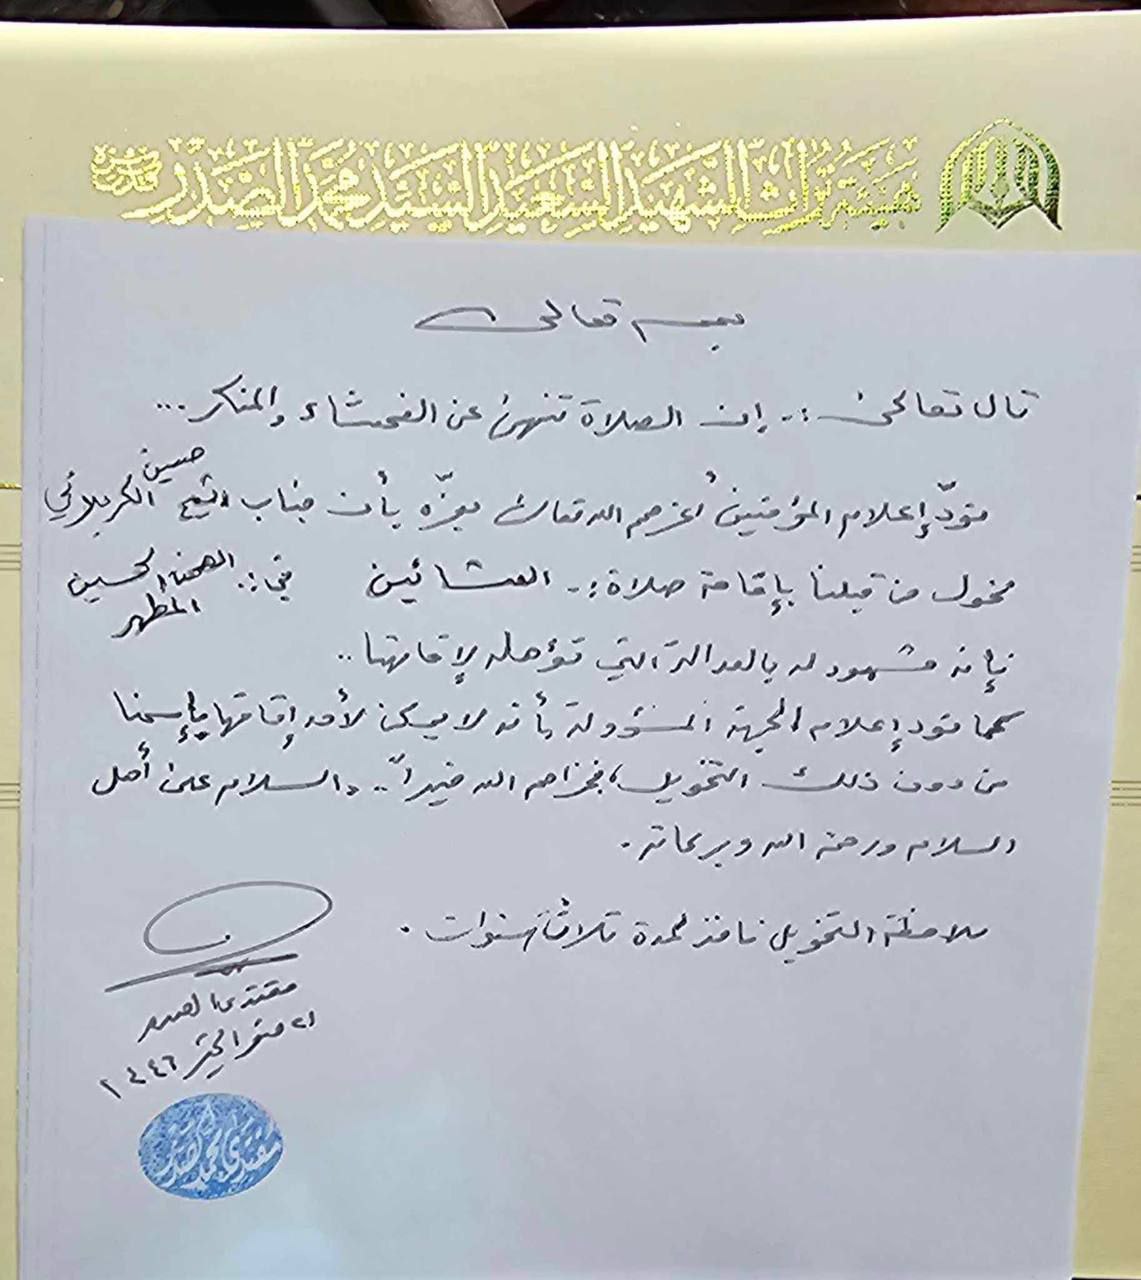 هيئة تراث الشهيد السعيد السيد محمد الصدر
بسمه تعالى
قال تعالى :ـ إن الصلاة تنهى عن الفحشاء والمنكر ...
نودّ إعلام المؤمنين أعزهم الله تعالى بعزّه بأن جناب الشيخ حسين الكربلائي
مخول من قبلنا بإقامة صلاة :ـ العشائين في :ـ الصحن الحسيني المطهر
فإنه مشهود له بالعدالة التي تؤهله لإقامتها ..
كما نود إعلام الجهة المسؤولة بأنه لا يمكن لأحد إقامتها بإسمنا
من دون ذلك التخويل، فجزاهم الله خيراً .. والسلام على أهل
السلام ورحمة الله وبركاته .
ملاحظة التخويل نافذ لمدة ثلاث سنوات .
مقتدى الصدر
٢١ صفر الخير ١٤٤٦
مقتدى محمد الصدر